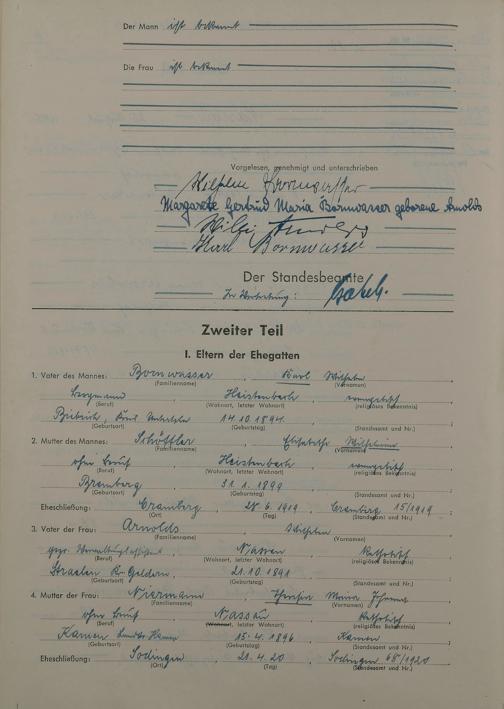 Der Mann ist bekannt
Die Frau ist bekannt
Vorgelesen, genehmigt und unterschrieben
Wilhelm Bornwasser
Margarete Gertrud Maria Bornwasser geborene Arnolds
Karl Bornwasser
Der Standesbeamte
In Vertretung:
Zweiter Teil
I. Eltern der Ehegatten
1. Vater des Mannes: Bornwasser , Karl Wilhelm ,
(Familienname) (Vornamen)
Bergmann , Heistenbach , evangelisch ,
(Beruf) (Wohnort, letzter Wohnort) (religiöses Bekenntnis)
14.10.1894
(Geburtsort) (Geburtstag) (Standesamt und Nr.)
2. Mutter des Mannes: , Elisabethe Wilhelmine ,
(Familienname) (Vornamen)
ohne Beruf , Heistenbach , evangelisch ,
(Beruf) (Wohnort, letzter Wohnort) (religiöses Bekenntnis)
31.1.1899
(Geburtsort) (Geburtstag) (Standesamt und Nr.)
Eheschließung: Cramberg , 28.6.1919 , Cramberg 15/1919 ;
(Ort) (Tag) (Standesamt und Nr.)
3. Vater der Frau: Arnolds , Wilhelm ,
(Familienname) (Vornamen)
Nassau , katholisch ,
(Beruf) (Wohnort, letzter Wohnort) (religiöses Bekenntnis)
Straelen Kr. Geldern , 21.10.1891 ,
(Geburtsort) (Geburtstag) (Standesamt und Nr.)
4. Mutter der Frau: Niermann , Maria ,
(Familienname) (Vornamen)
ohne Beruf , Nassau , katholisch ,
(Beruf) (Wohnort, letzter Wohnort) (religiöses Bekenntnis)
Kamen , 15.4.1896 , Kamen ;
(Geburtsort) (Geburtstag) (Standesamt und Nr.)
Eheschließung: Sodingen , 21.4.20 , Sodingen 68/1920
(Ort) (Tag) (Standesamt und Nr.)